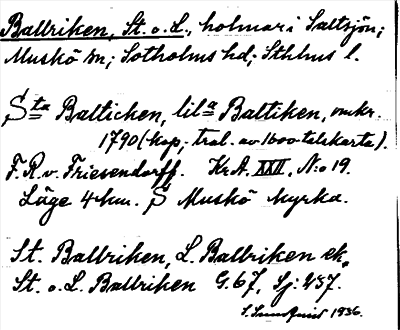 Ballriken, St. o. L., holmar i Saltsjön;
Muskö sn; Sotholms hd; Sthlms l.
Sta Balticken, lila Baltiken, omkr.
1790 (kop. trol. av 1600-talskarta).
F. R. v. Friesendorff. Kr.A. XXII, N:o 19.
Läge 4 km. S Muskö kyrka.
St. Ballriken, L. Ballriken ek.
St. o. L. Ballriken G. 67, Sj: 457.
1936.